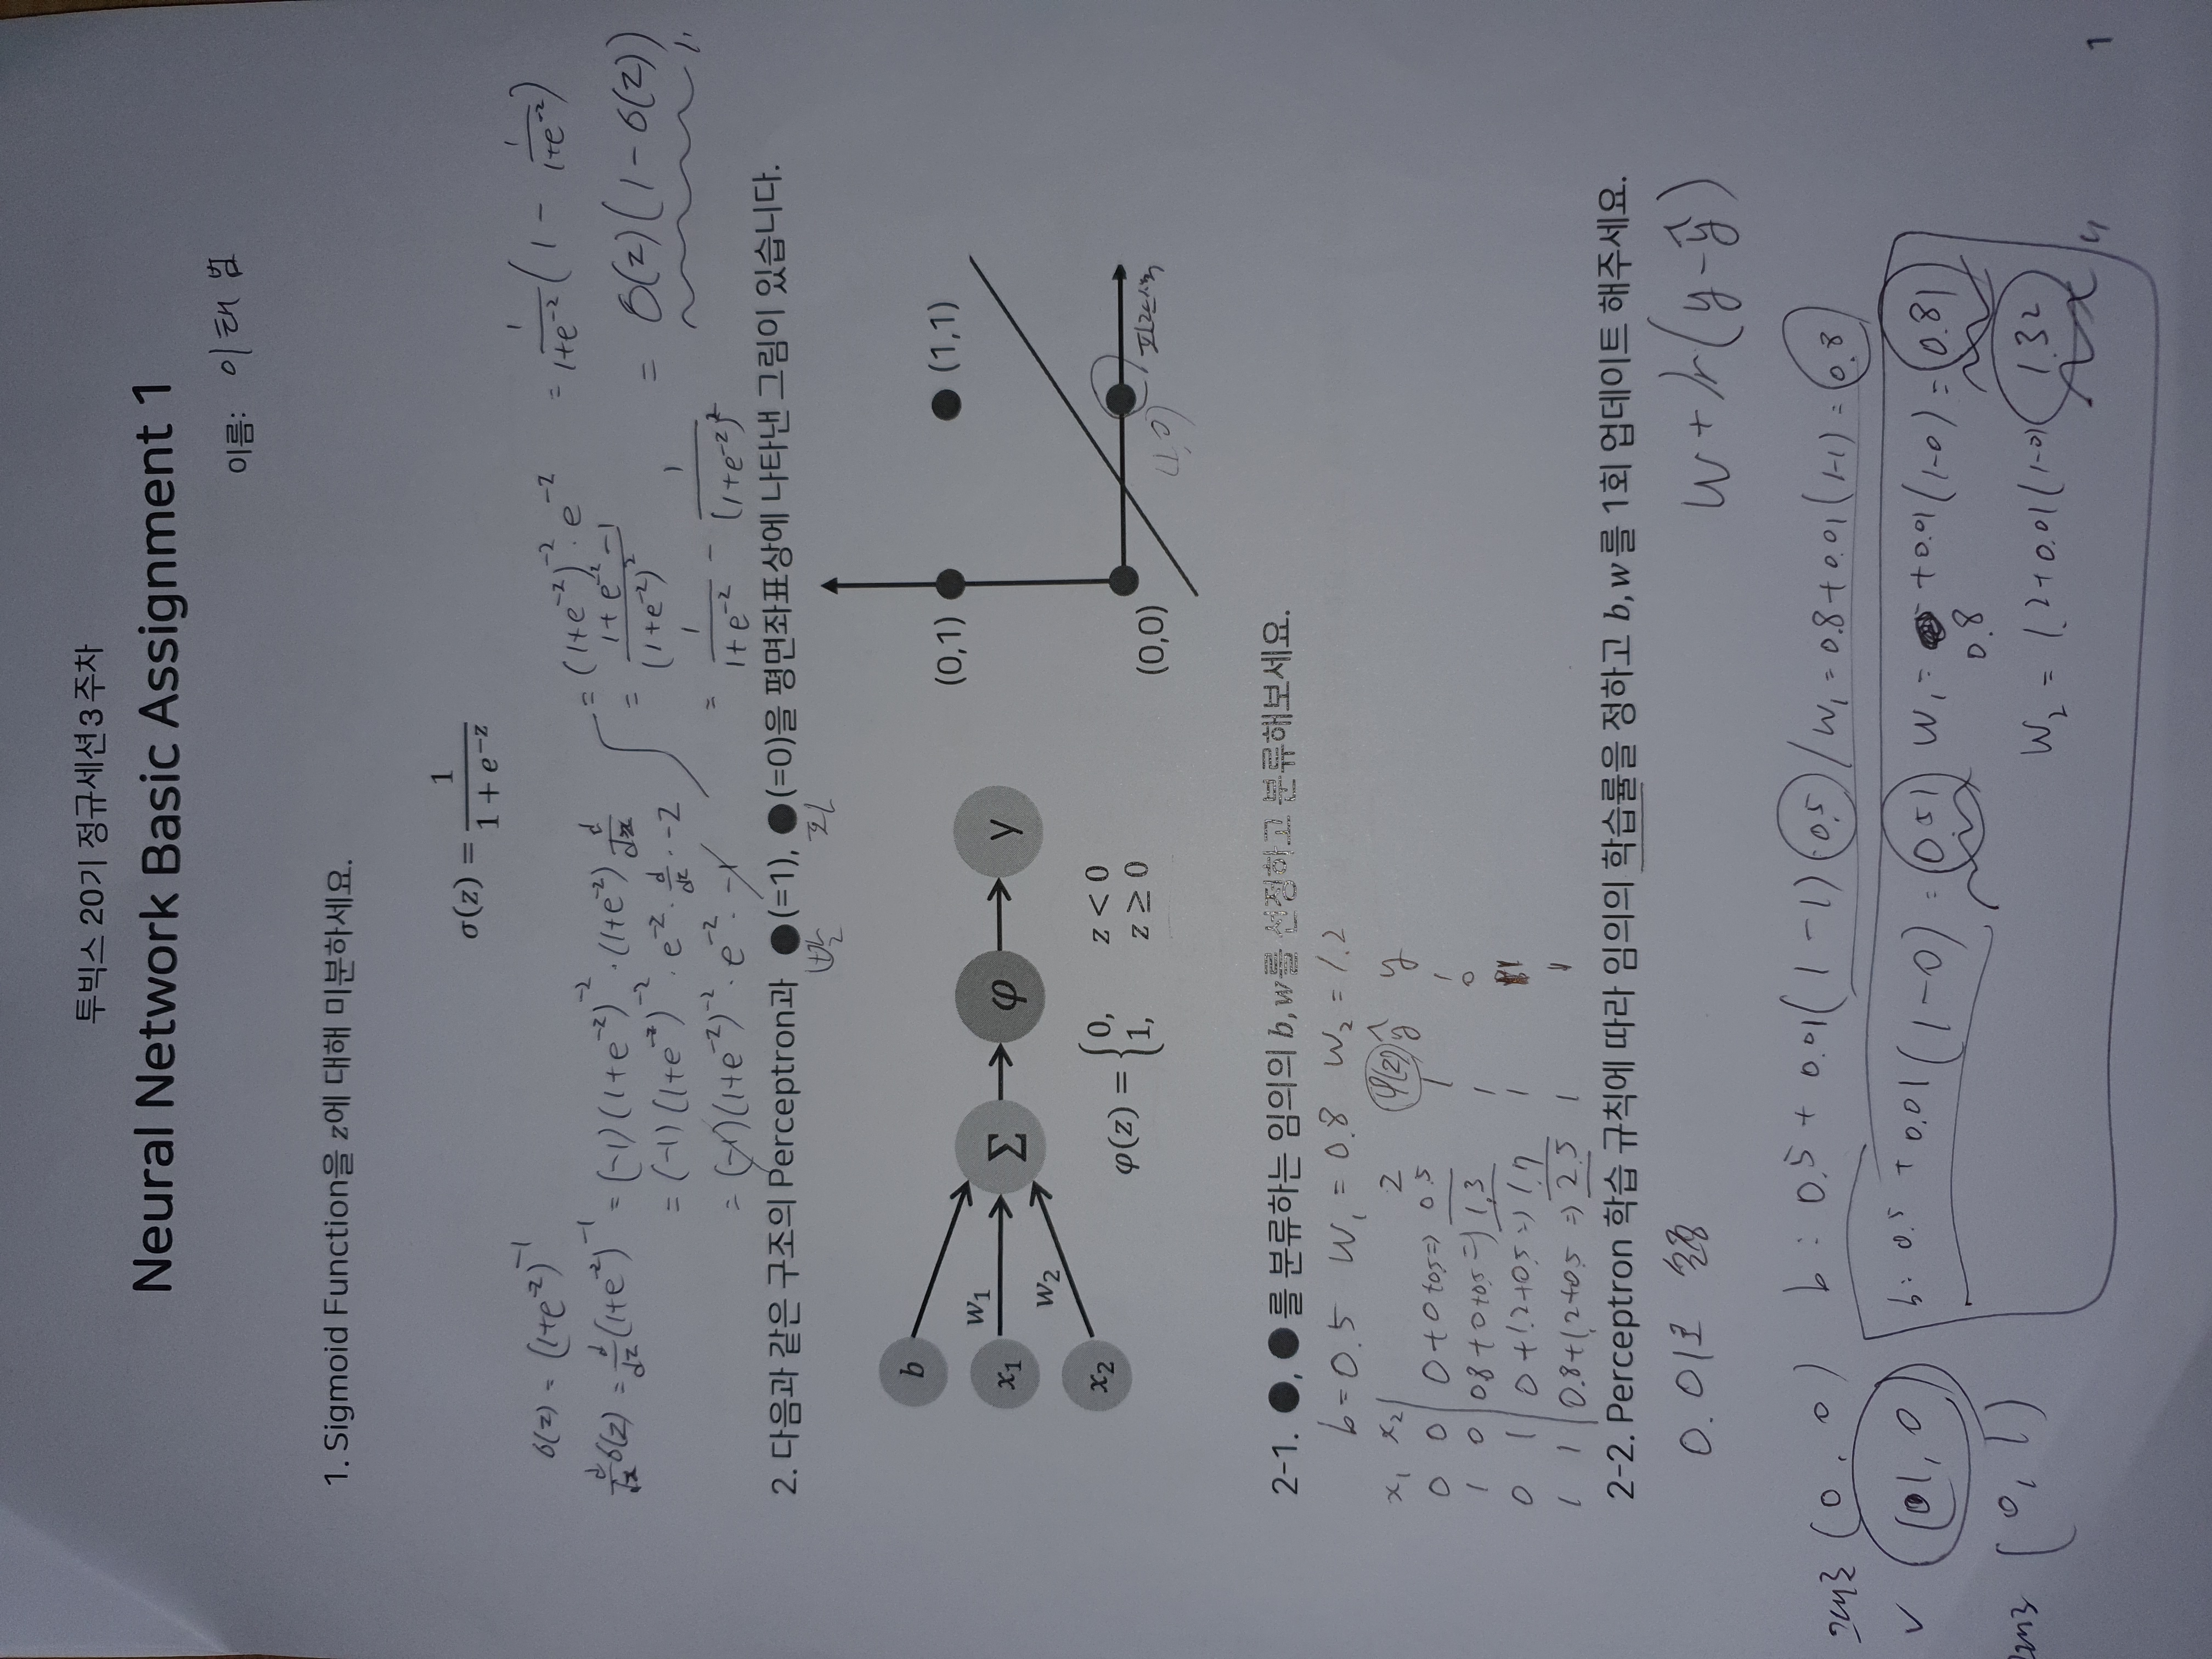 투빅스 20기 정규세션3주차
Neural Network Basic Assignment 1
이름: 이태범
1. Sigmoid Function을 z에 대해 미분하세요.
σ(z) = 1 / (1 + e^{-z})
σ(z) = (1+e^{-z})^{-1}
d/dz σ(z) = d/dz (1+e^{-z})^{-1} = (-1)(1+e^{-z})^{-2} · (1+e^{-z}) d/dz
= (-1)(1+e^{-z})^{-2} · e^{-z} · d/dz · -z
= (-1)(1+e^{-z})^{-2} · e^{-z} · -1
= (1+e^{-z})^{-2} · e^{-z}
= (1+e^{-z}-1) / (1+e^{-z})^2
= 1/(1+e^{-z}) - 1/(1+e^{-z})^2
= 1/(1+e^{-z}) (1 - 1/(1+e^{-z}))
= σ(z)(1-σ(z))
2. 다음과 같은 구조의 Perceptron과 ●(=1), ●(=0)을 평면좌표상에 나타낸 그림이 있습니다.
빨 파
b
x₁
x₂
w₁
w₂
Σ
φ
y
φ(z) = {0, z < 0
1, z ≥ 0
(0,1)
(1,1)
(0,0)
(1,0)
파란색
2-1. ●, ●를 분류하는 임의의 b, w를 선정하고 분류해보세요.
b = 0.5 w₁ = 0.8 w₂ = 1.2
x₁ x₂ z φ(z) ŷ y
0 0 0+0+0.5 => 0.5 1 1
1 0 0.8+0+0.5 => 1.3 1 0
0 1 0+1.2+0.5 => 1.7 1 1
1 1 0.8+1.2+0.5 => 2.5 1 1
2-2. Perceptron 학습 규칙에 따라 임의의 학습률을 정하고 b, w를 1회 업데이트 해주세요.
0.01로 설정
w + lr(y-ŷ)
그대로 (0, 0) b : 0.5 + 0.01(1-1) 0.5 / w₁ = 0.8+0.01(1-1) = 0.8
✓ (1, 0) b: 0.5 + 0.01(1-0) = 0.51 w₁ = 0.8 +0.01(1-0) = 0.81
w₂ = 1.2+0.01(1-0) 1.32
그대로 (0, 1)
1